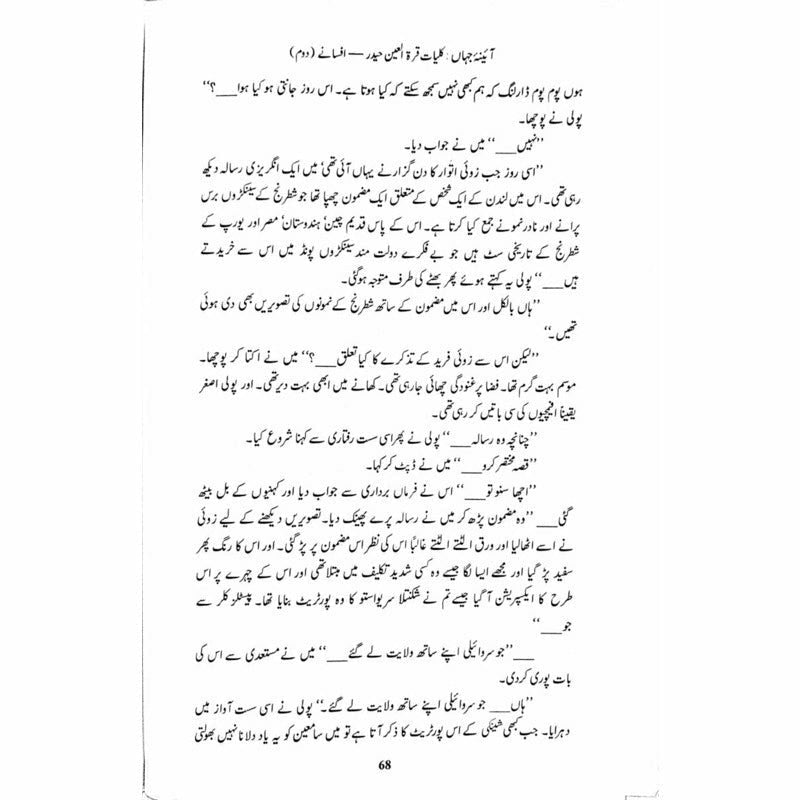 آئینۂ جہاں : کلیات قرۃ العین حیدر — افسانے (دوم)
ہوں پوم پوم ڈارلنگ کہ ہم کبھی نہیں سمجھ سکتے کہ کیا ہوتا ہے۔ اس روز جانتی ہو کیا ہوا___؟‘‘
پولی نے پوچھا۔
’’نہیں___‘‘ میں نے جواب دیا۔
’’اسی روز جب زوئی اتّوار کا دن گزارنے یہاں آئی تھی‘ میں ایک انگریزی رسالہ دیکھ
رہی تھی۔ اس میں لندن کے ایک شخص کے متعلق ایک مضمون چھپا تھا جو شطرنج کے سینکڑوں برس
پرانے اور نادر نمونے جمع کیا کرتا ہے۔ اس کے پاس قدیم چین‘ ہندوستان‘ مصر اور یورپ کے
شطرنج کے تاریخی سٹ ہیں جو بے فکرے دولت مند سینکڑوں پونڈ میں اس سے خریدتے
ہیں___‘‘ پولی یہ کہتے ہوئے پھر بھٹے کی طرف متوجہ ہوگئی۔
’’ہاں بالکل اور اس میں مضمون کے ساتھ شطرنج کے نمونوں کی تصویریں بھی دی ہوئی
تھیں۔‘‘
’’لیکن اس سے زوئی فرید کے تذکرے کا کیا تعلق___؟‘‘ میں نے اکتا کر پوچھا۔
موسم بہت گرم تھا۔ فضا پر غنودگی چھائی جارہی تھی۔ کھانے میں ابھی بہت دیر تھی۔ اور پولی اصغر
یقیناً افیمچیوں کی سی باتیں کر رہی تھی۔
’’چنانچہ وہ رسالہ___‘‘ پولی نے پھر اسی سست رفتاری سے کہنا شروع کیا۔
’’قصہ مختصر کرو___‘‘ میں نے ڈپٹ کر کہا۔
’’اچھا سنو تو___‘‘ اس نے فرماں برداری سے جواب دیا اور کہنیوں کے بل بیٹھ
گئی___ ’’وہ مضمون پڑھ کر میں نے رسالہ پرے پھینک دیا۔ تصویریں دیکھنے کے لیے زوئی
نے اسے اٹھالیا اور ورق الٹتے الٹتے غالباً اس کی نظر اس مضمون پر پڑ گئی۔ اور اس کا رنگ پھر
سفید پڑ گیا اور مجھے ایسا لگا جیسے وہ کسی شدید تکلیف میں مبتلا تھی اور اس کے چہرے پر اس
طرح کا ایکسپریشن آگیا جیسے تم نے شکنتلا سریواستو کا وہ پورٹریٹ بنایا تھا۔ پیسٹلز کلر سے
جو___‘‘
___’’جو سروائیلی اپنے ساتھ ولایت لے گئے___‘‘ میں نے مستعدی سے اس کی
بات پوری کردی۔
’’ہاں___ جو سروائیلی اپنے ساتھ ولایت لے گئے۔‘‘ پولی نے اسی سست آواز میں
دہرایا۔ جب کبھی شینکی کے اس پورٹریٹ کا ذکر آتا ہے تو میں سامعین کو یہ یاد دلانا نہیں بھولتی
68